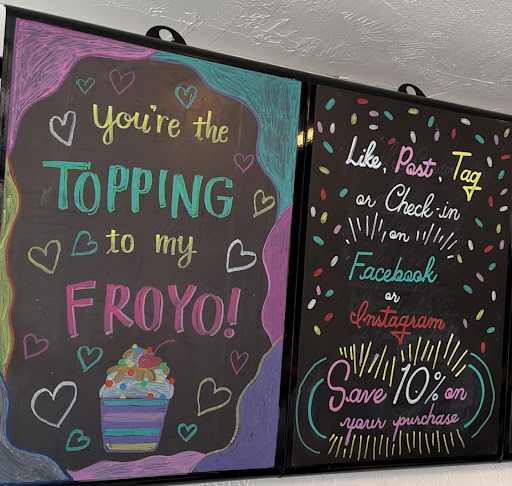 You're the
TOPPING
to my
FROYO!
Like, Post, Tag
or Check-in
on
Facebook
or
Instagram
Save 10% on
your purchase